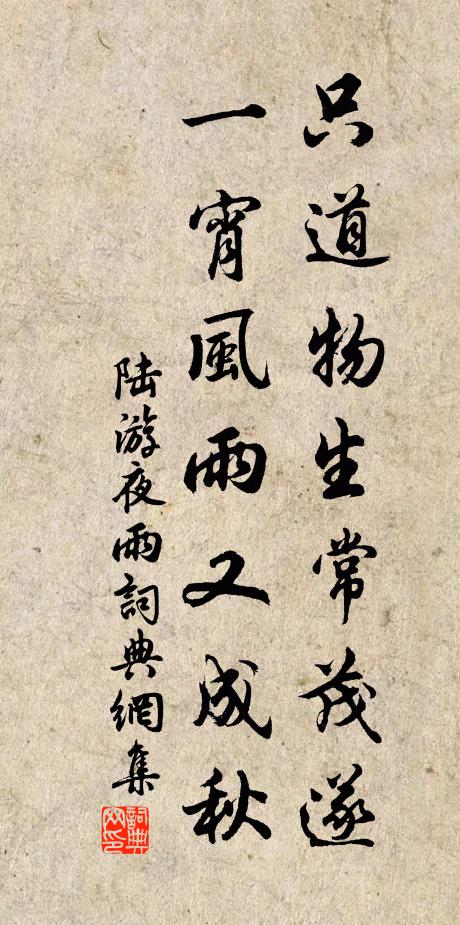 只道物生常茂遂
一宵風雨又成秋
陆游夜雨詞典網集
詞典網印